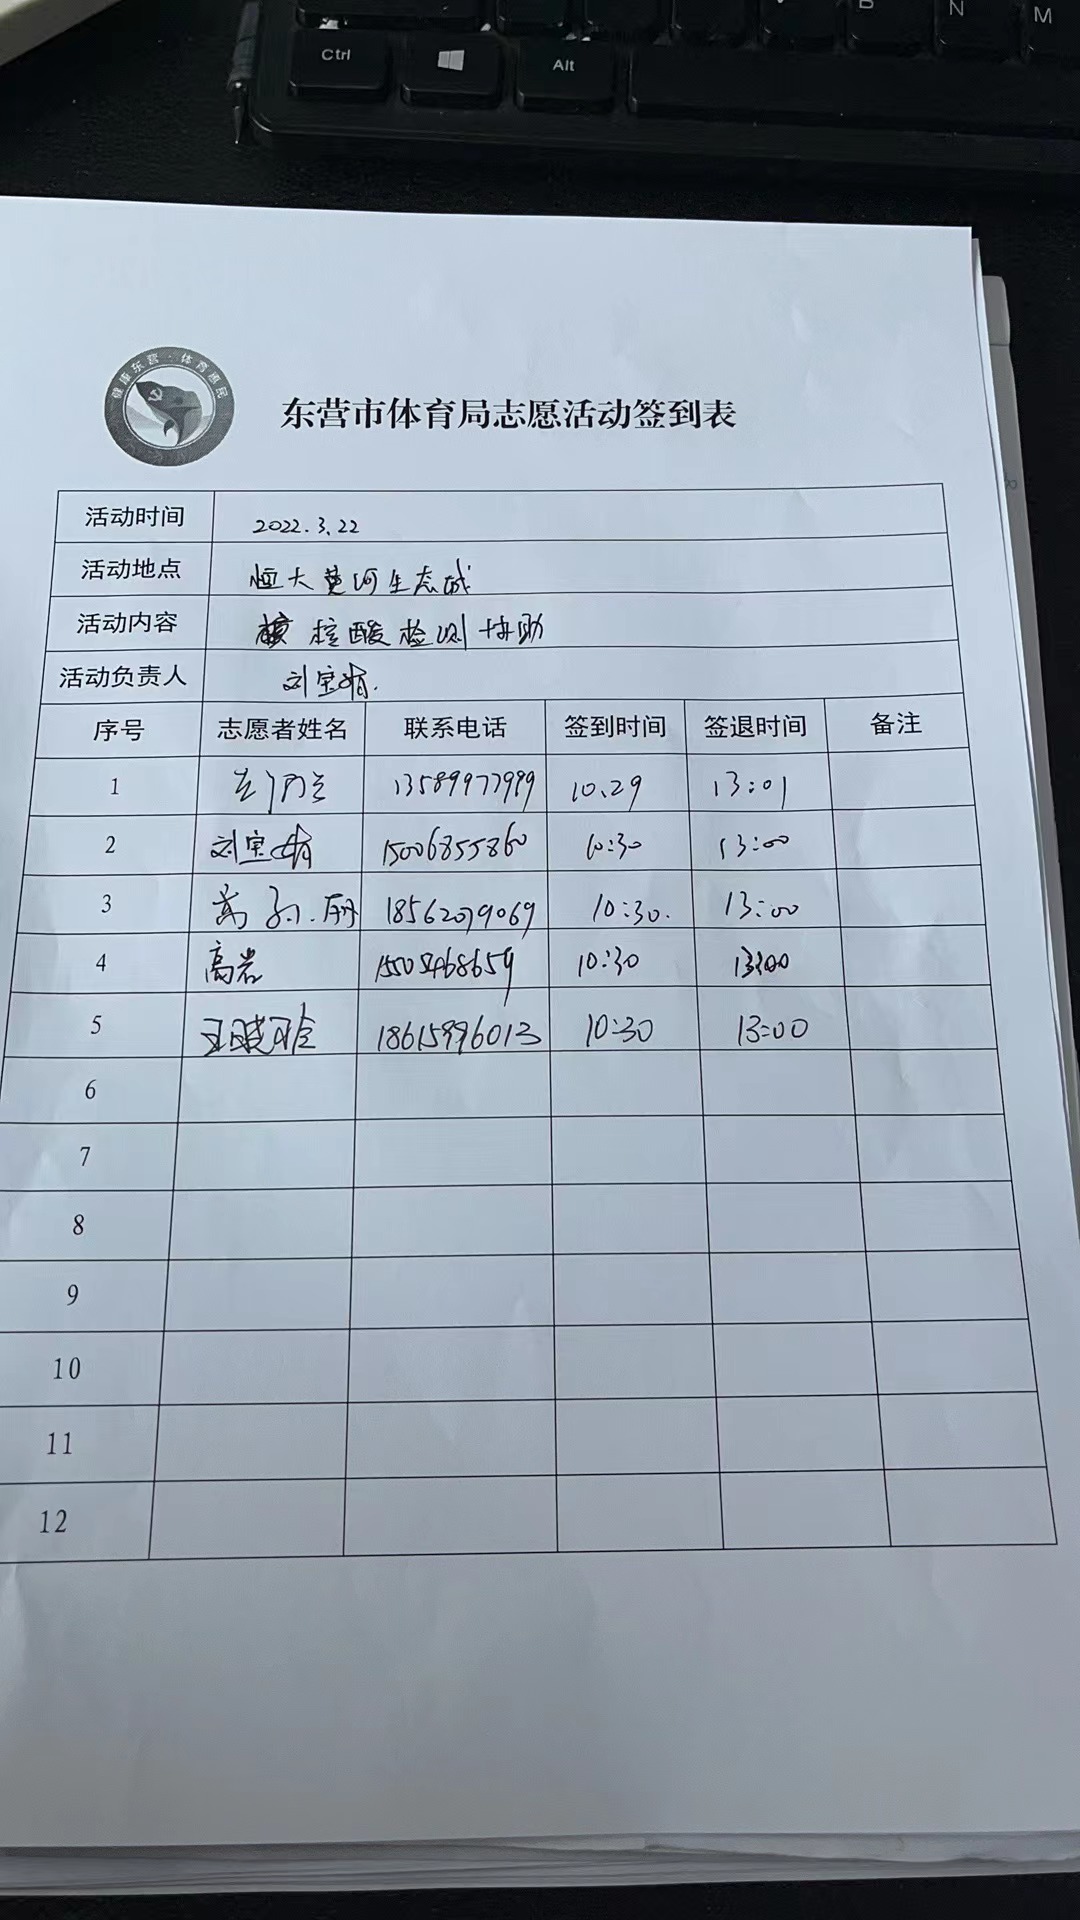 Ctrl
Alt
B
N
M
健康东营·体育惠民
东营市体育局志愿活动签到表
活动时间 2022.3.22
活动地点 恒大黄河生态城
活动内容 核酸检测协助
活动负责人 刘宝娟.
序号 志愿者姓名 联系电话 签到时间 签退时间 备注
1 13589977999 10.29 13:01
2 刘宝娟 15006855860 10:30 13:00
3 18562079069 10:30. 13:00
4 高岩 15505468659 10:30 13:00
5 王晓玲 18615996013 10:30 13:00
6
7
8
9
10
11
12